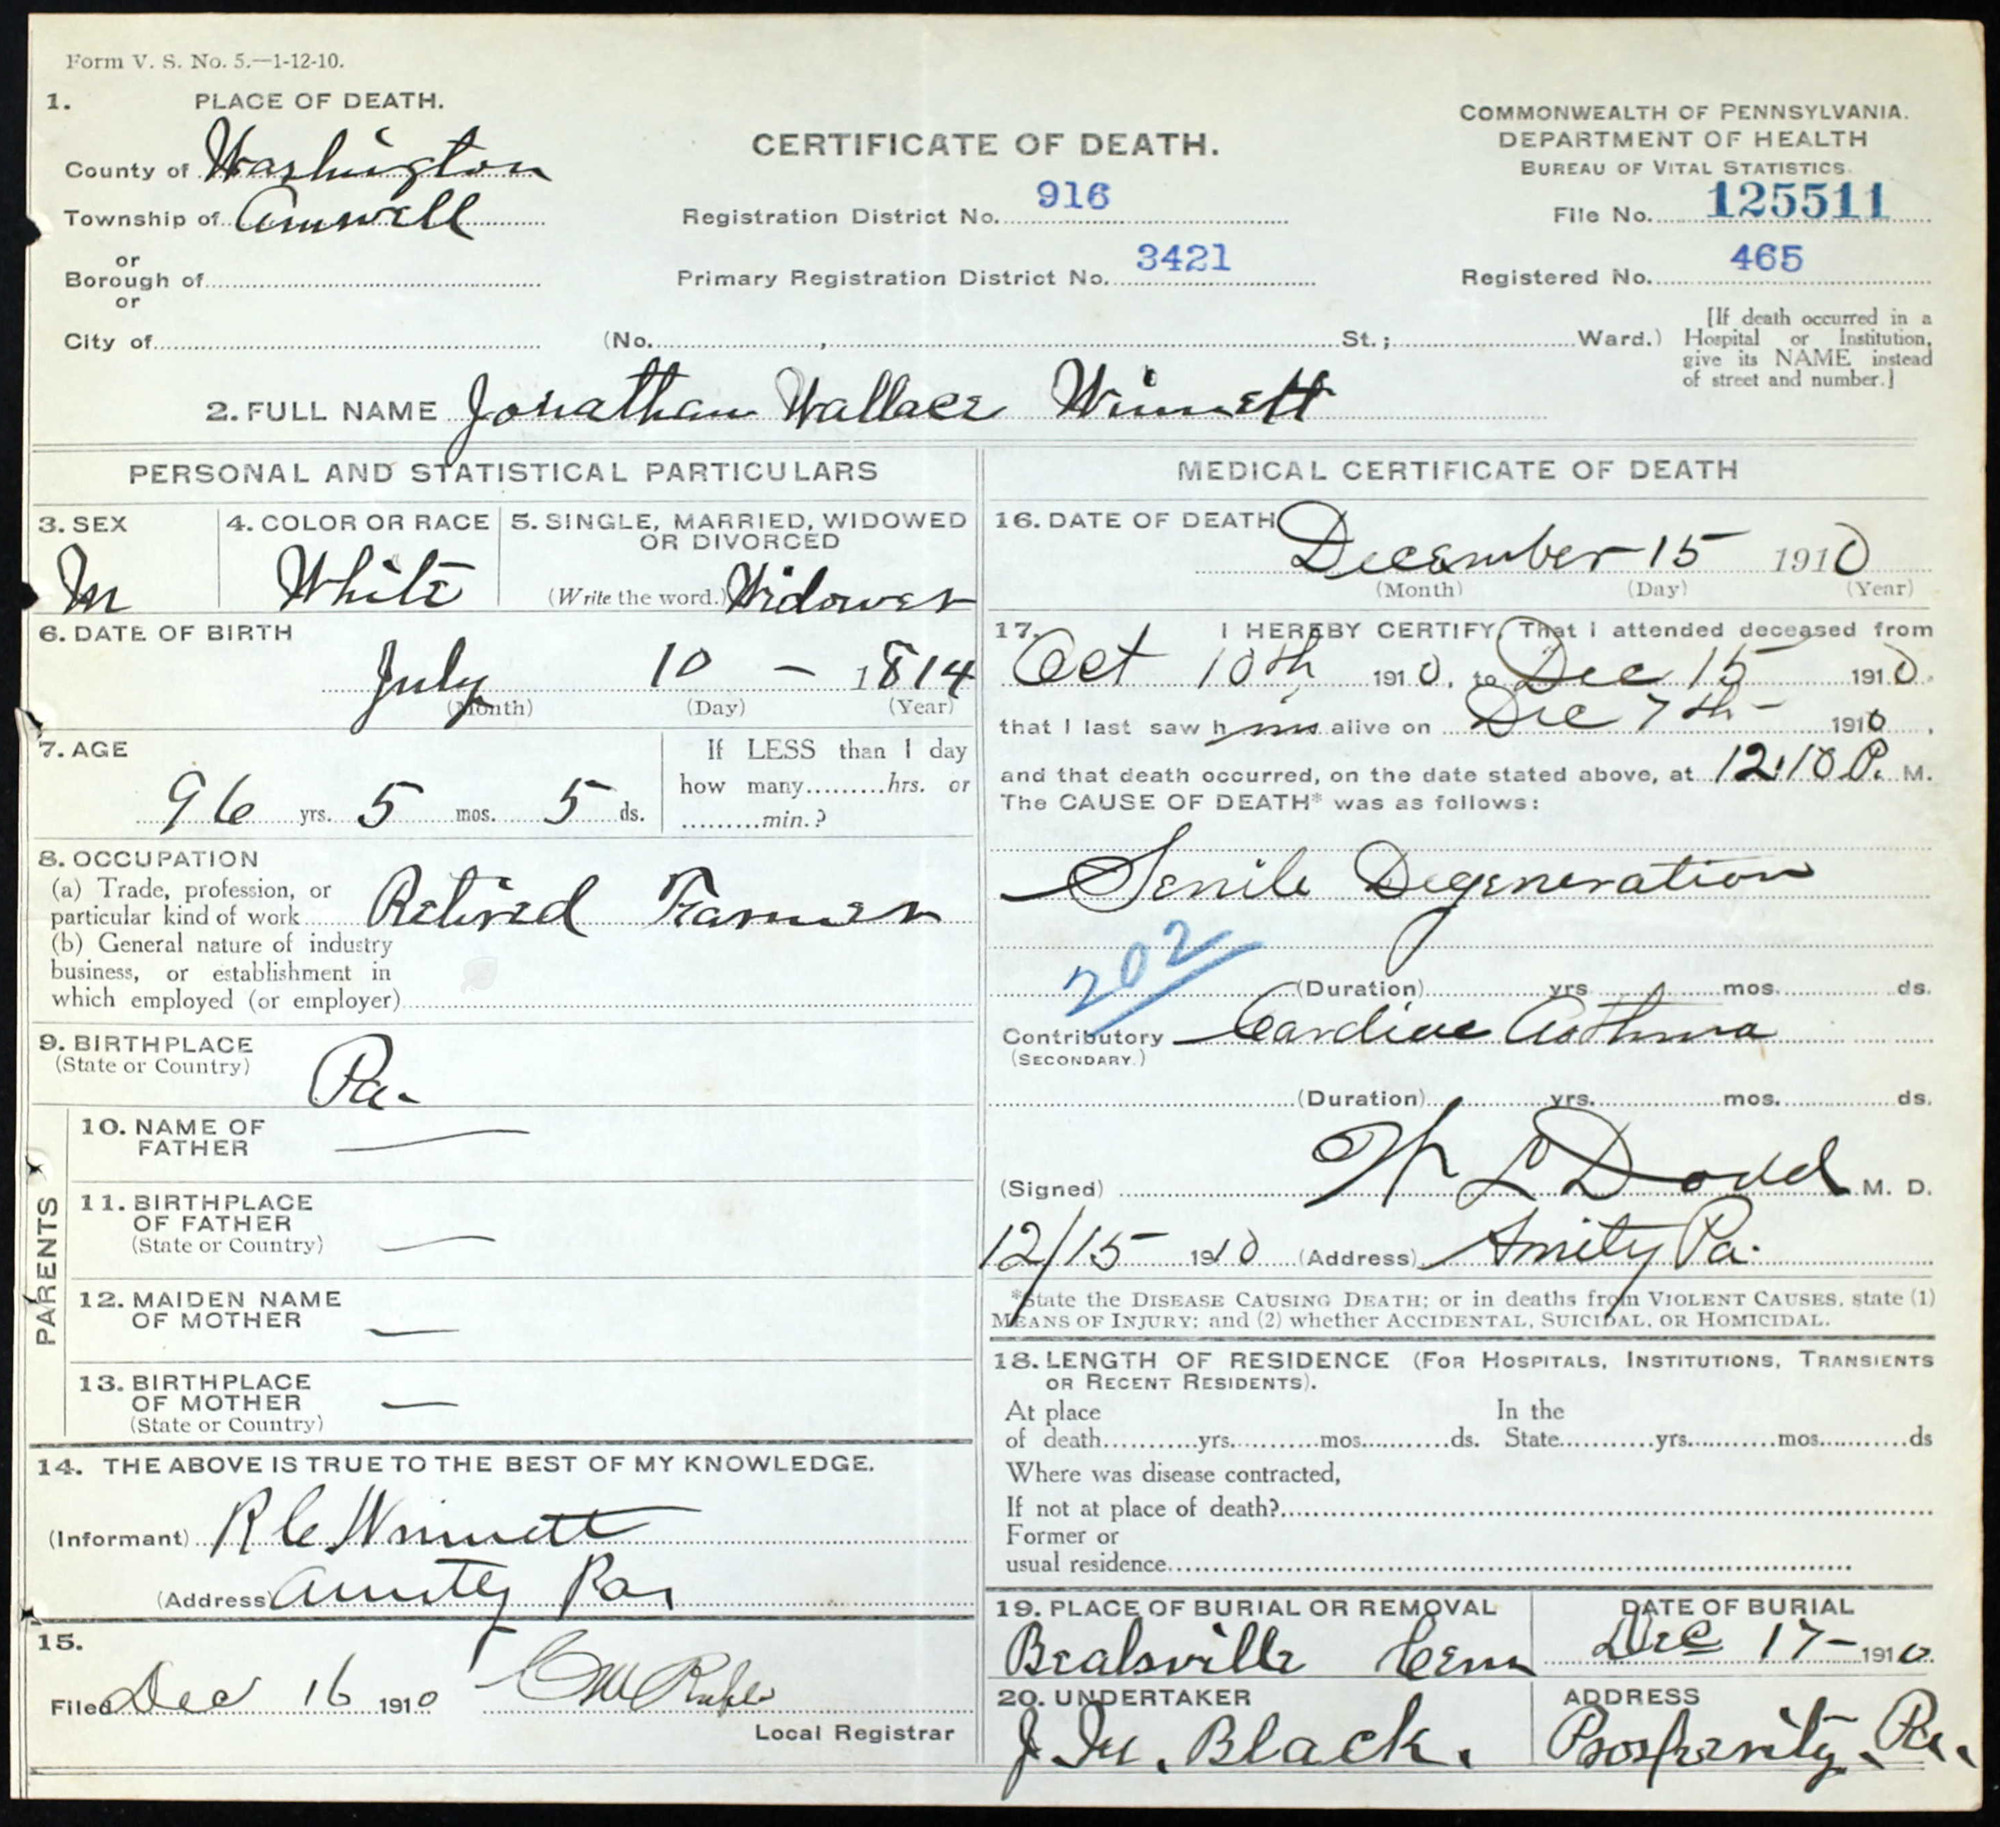 Form V. S. No. 5.—1-12-10.
1. PLACE OF DEATH.
County of Washington
Township of Amwell
or
Borough of
or
City of
CERTIFICATE OF DEATH.
Registration District No. 916
Primary Registration District No. 3421
(No. , St.; Ward.)
COMMONWEALTH OF PENNSYLVANIA.
DEPARTMENT OF HEALTH
BUREAU OF VITAL STATISTICS.
File No. 125511
Registered No. 465
[If death occurred in a
Hospital or Institution,
give its NAME instead
of street and number.]
2. FULL NAME Jonathan Wallace Winnett
PERSONAL AND STATISTICAL PARTICULARS
3. SEX
M
4. COLOR OR RACE
White
5. SINGLE, MARRIED, WIDOWED
OR DIVORCED
(Write the word.) Widower
6. DATE OF BIRTH
July 10 — 1814
(Month) (Day) (Year)
7. AGE
96 yrs. 5 mos. 5 ds.
If LESS than 1 day
how many hrs. or
min.?
8. OCCUPATION
(a) Trade, profession, or
particular kind of work Retired Farmer
(b) General nature of industry
business, or establishment in
which employed (or employer)
9. BIRTHPLACE
(State or Country)
Pa.
PARENTS
10. NAME OF
FATHER —
11. BIRTHPLACE
OF FATHER
(State or Country) —
12. MAIDEN NAME
OF MOTHER —
13. BIRTHPLACE
OF MOTHER —
(State or Country)
14. THE ABOVE IS TRUE TO THE BEST OF MY KNOWLEDGE.
(Informant) R C Winnett
(Address) Amity Pa.
15.
Filed Dec 16 1910 C M
Local Registrar
MEDICAL CERTIFICATE OF DEATH
16. DATE OF DEATH
December 15 1910
(Month) (Day) (Year)
17. I HEREBY CERTIFY, That I attended deceased from
Oct 10th 1910, to Dec 15 1910.
that I last saw him alive on Dec 7th — 1910,
and that death occurred, on the date stated above, at 12.10 P. M.
The CAUSE OF DEATH* was as follows:
Senile Degeneration
202
(Duration) yrs. mos. ds.
Contributory Cardiac Asthma
(SECONDARY.)
(Duration) yrs. mos. ds.
(Signed) W L Dodd M. D.
12/15 1910 (Address) Amity Pa.
*State the DISEASE CAUSING DEATH; or in deaths from VIOLENT CAUSES, state (1)
MEANS OF INJURY; and (2) whether ACCIDENTAL, SUICIDAL, OR HOMICIDAL.
18. LENGTH OF RESIDENCE (FOR HOSPITALS, INSTITUTIONS, TRANSIENTS
OR RECENT RESIDENTS).
At place In the
of death yrs. mos. ds. State yrs. mos. ds
Where was disease contracted,
If not at place of death?
Former or
usual residence
19. PLACE OF BURIAL OR REMOVAL
Bealsville Cem
DATE OF BURIAL
Dec 17 — 1910.
20. UNDERTAKER
J. M. Black.
ADDRESS
Prosperity, Pa.